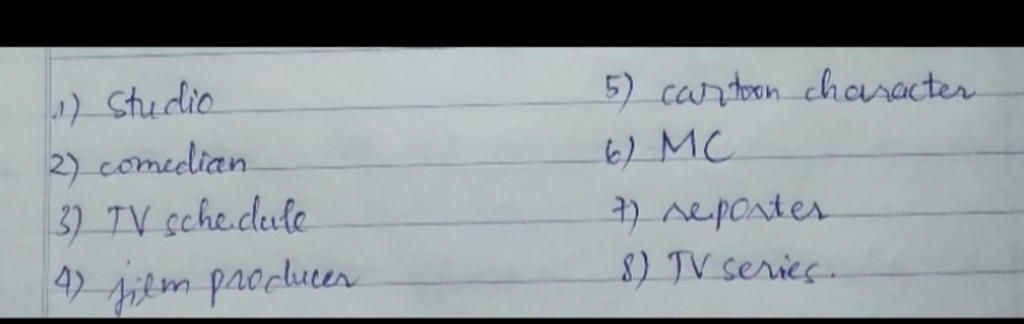 1) Studio
2) comedian
3) TV schedule
4) film producer
5) cartoon character
6) MC
7) reporter
8) TV series.